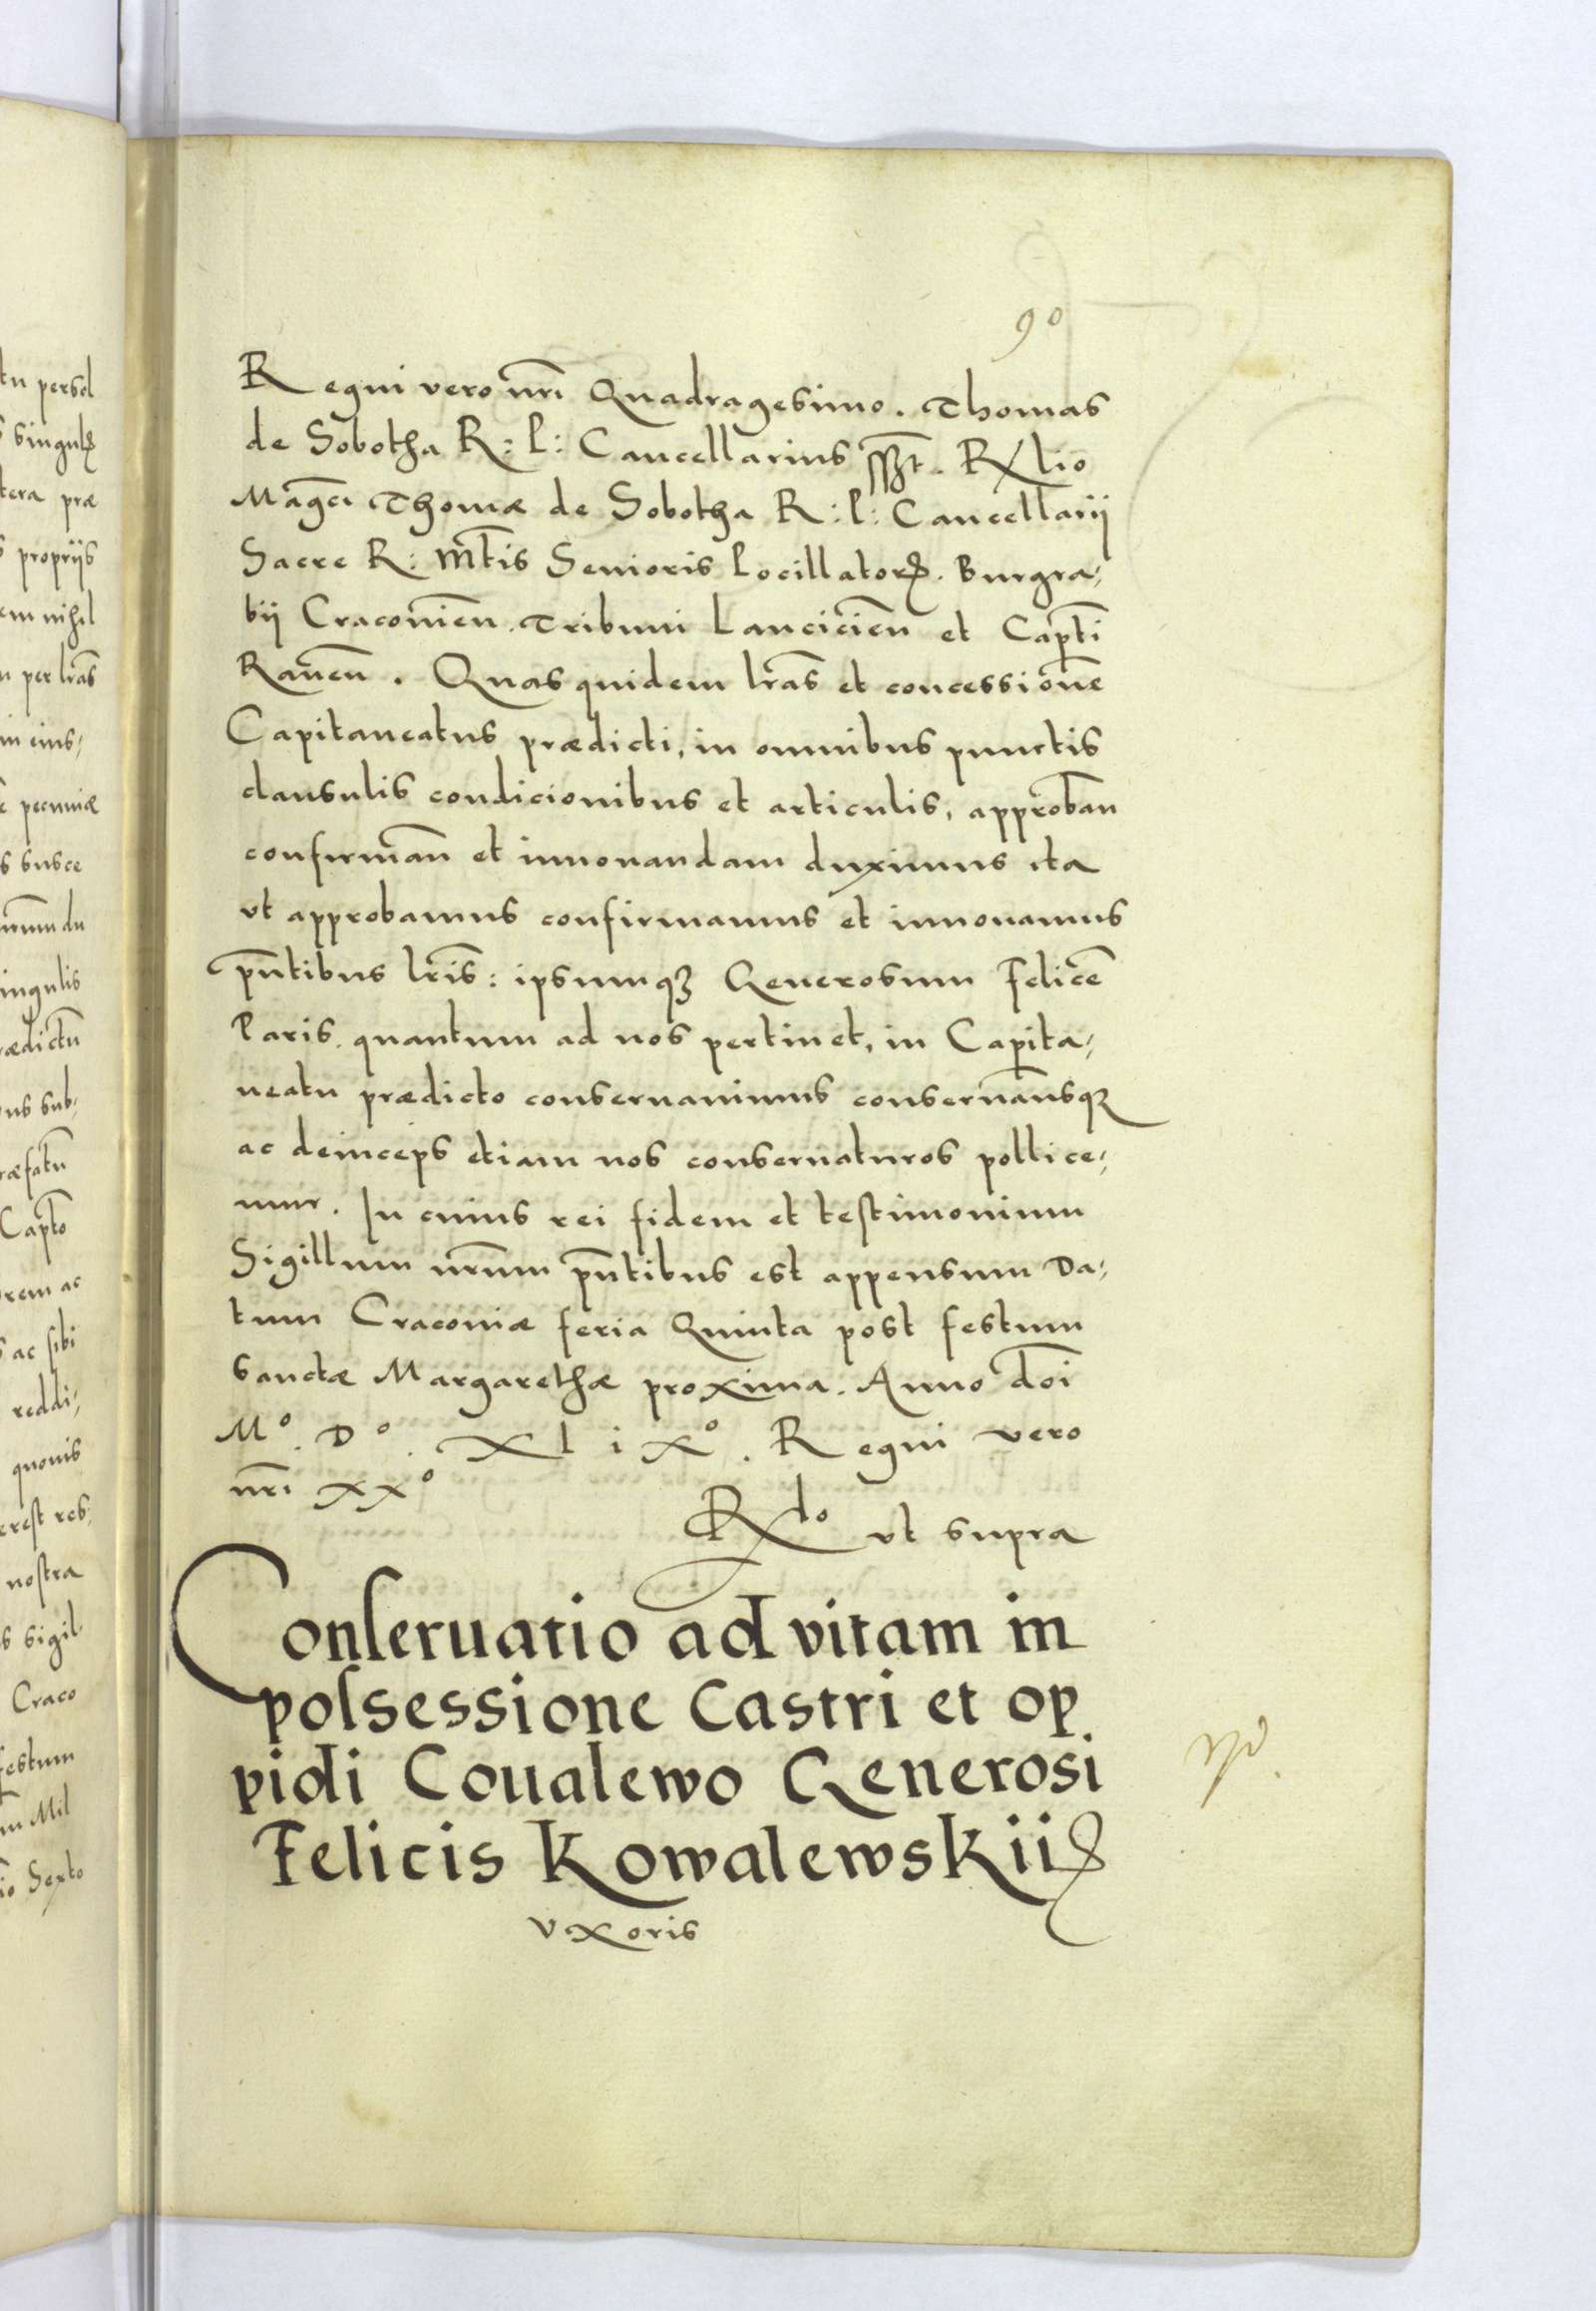 90
Regni vero nrī Quadragesimo. Thomas
de Sobotha R: P: Cancellarius sszt. Rxlio
Magci Thomæ de Sobotha R: P: Cancellarij
Sacre R: Mtis Senioris Pocillator. Burgra-
bij Craconien̄. Tribuni Lancicien̄ et Capti
Raven̄. Quas quidem lrās et concessionē
Capitaneatus prædicti, in omnibus punctis
clausulis condicionibus et articulis, approban̄
confirman̄ et innouandam duximus ita
vt approbamus confirmamus et innouamus
pn̄tibus lrīs: ipsumqz Generosum Felicē
Paris. quantum ad nos pertinet, in Capita-
neatu prædicto conseruauimus conseruamusqz
ac deinceps etiam nos conseruaturos pollice-
mur. In cuius rei fidem et testimonium
Sigillum nrūm pn̄tibus est appensum Da-
tum Cracoviæ feria Quinta post festum
Sanctæ Margarethæ proxima. Anno dōi
Mº. Dº. XLiXº. Regni vero
nrī XXº
Rxdo vt supra
Conseruatio ad vitam in
possessione Castri et op
pidi Coualewo Generosi
Felicis Kowalewskii
vxoris
tu persol
singul
tera præ
propriis
em nihil
per lrās
in eius-
pecuniæ
susce
ingulis
ædictū
sub-
ræfatū
Capto
rem ac
ac sibi
reddi-
quouis
erest res-
nostra
s sigil-
Craco
festum
Mil
io Sexto